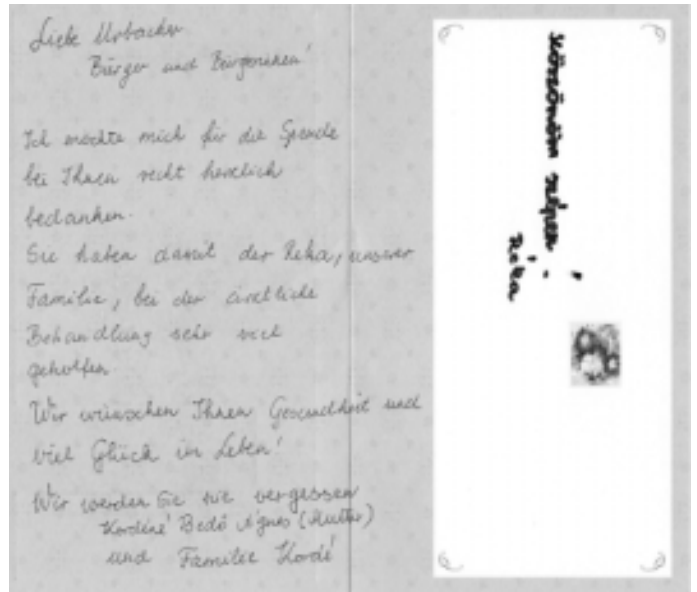 Liebe Urbacher
Bürger und Bürgerinnen!
Ich möchte mich für die Spende
bei Ihnen recht herzlich
bedanken.
Sie haben damit der Reka, unserer
Familie, bei der ärztliche
Behandlung sehr viel
geholfen.
Wir wünschen Ihnen Gesundheit und
viel Glück im Leben!
Wir werden Sie nie vergessen
Kordéné Bedő Ágnes (Mutter)
und Familie Kordé
Köszönöm szépen!
Reka